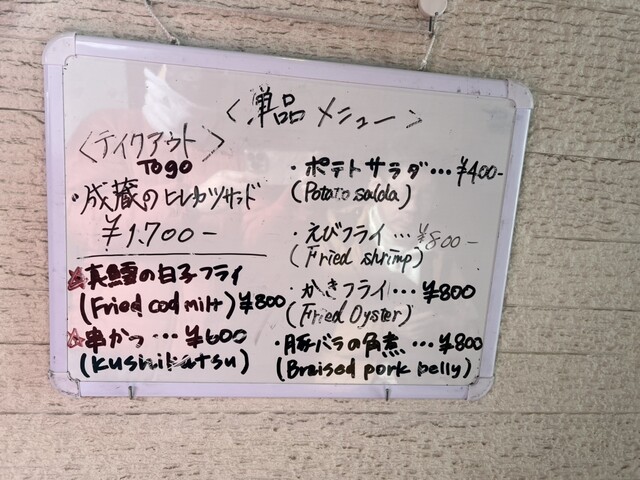 ＜単品メニュー＞
＜テイクアウト＞
Togo
・成蔵のヒレカツサンド
¥1.700-
☆真鱈の白子フライ
(Fried cod milt) ¥800
☆串かつ…¥600
(kushikatsu)
・ポテトサラダ…¥400-
(Potato salda)
・えびフライ…¥800-
(Fried shrimp)
・かきフライ…¥800
(Fried Oyster)
・豚バラの角煮…¥800
(Braised pork belly)